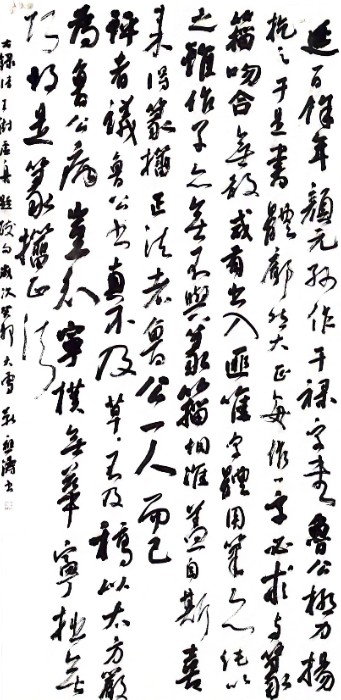 廷百餘年顏元孫作干祿字書魯公極力揚
挖之于是書體廓然大正每作一字必求与篆
籀吻合無敢或有出入匪唯字體用筆亦純以
之雖作字亦無不與篆籀相準蓋自斯喜
来得篆籀正法者魯公一人而已
評者議魯公書真不及草草不及稿以太方嚴
為魯公病豈不知寧樸無華寧拙無
巧故是篆籀正法
右録清王澍虛舟題跋句歲次癸卯大雪 書